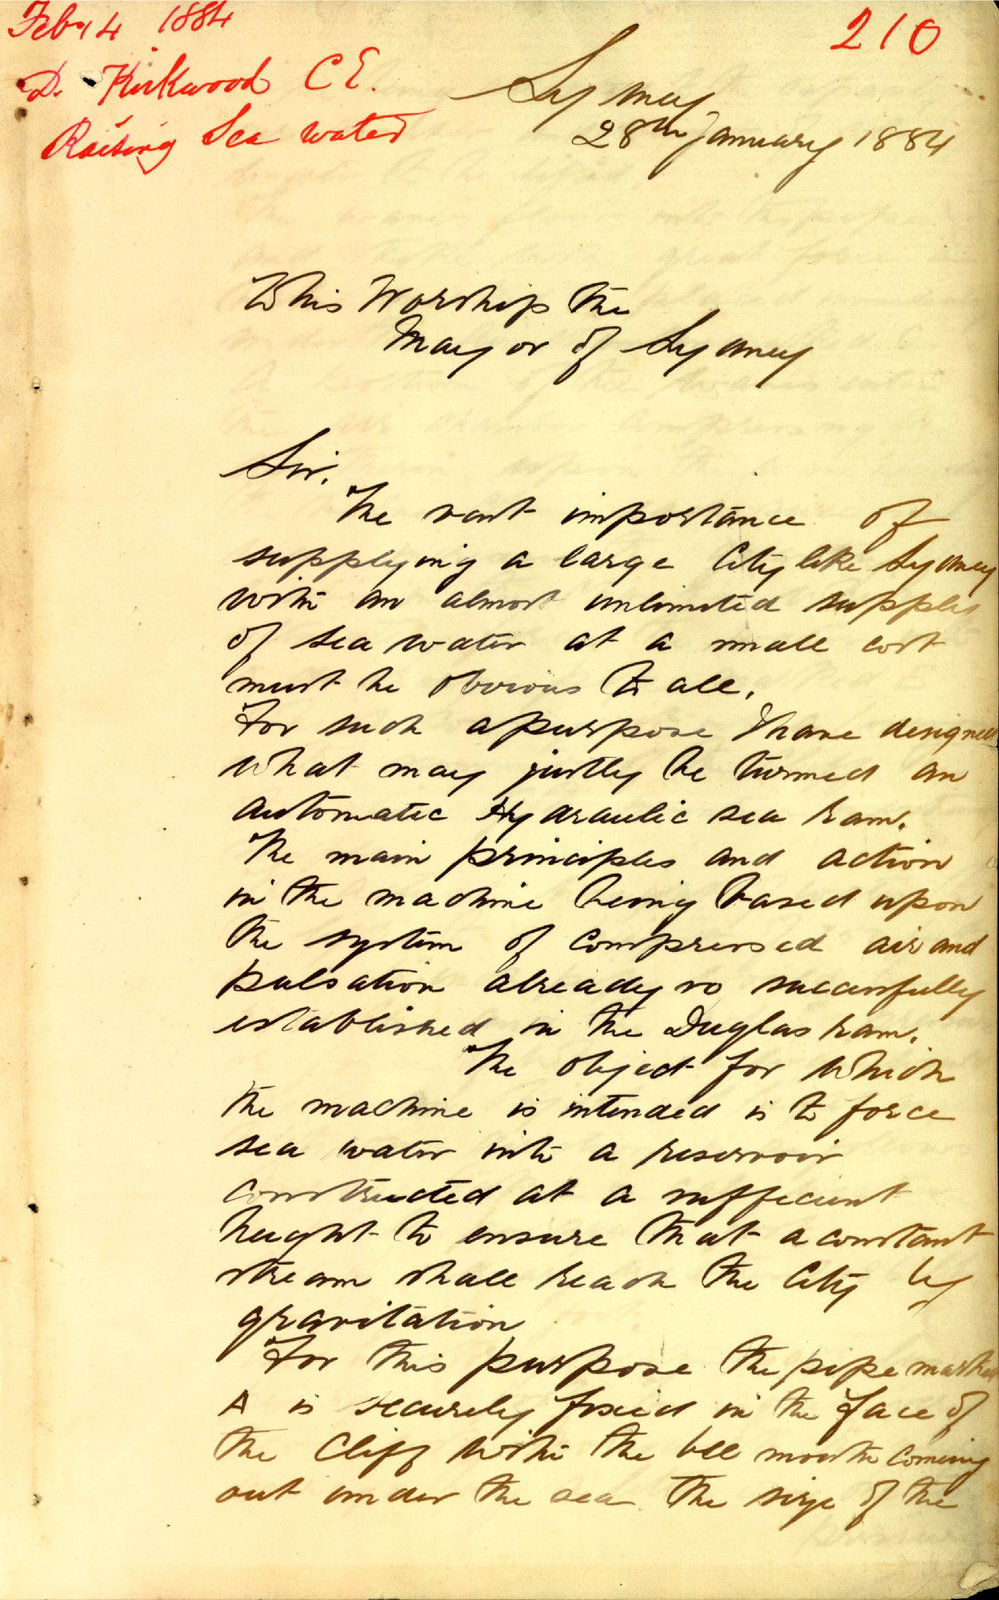 Feby 4 1884
D. Kirkwood C E.
Raising Sea water
210
Sydney
28th January 1884
To his Worship the
Mayor of Sydney
Sir.
The vast importance of
supplying a large City like Sydney
with an almost unlimited supply
of sea water at a small cost
must be obvious to all.
For such a purpose I have designed
what may justly be turmed an
automatic Hydraulic sea ram.
The main principles and action
in the machine being based upon
the system of compressed air and
pulsation already so succesfully
established in the Duglas ram.
The object for which
the machine is intended is to force
sea water into a reservoir
constructed at a sufficient
height to ensure that a constant
stream shall reach the City by
gravitation
For this purpose the pipe marked
A is securely fixed in the face of
the Cliff with the bell mouth coming
out under the sea the size of the